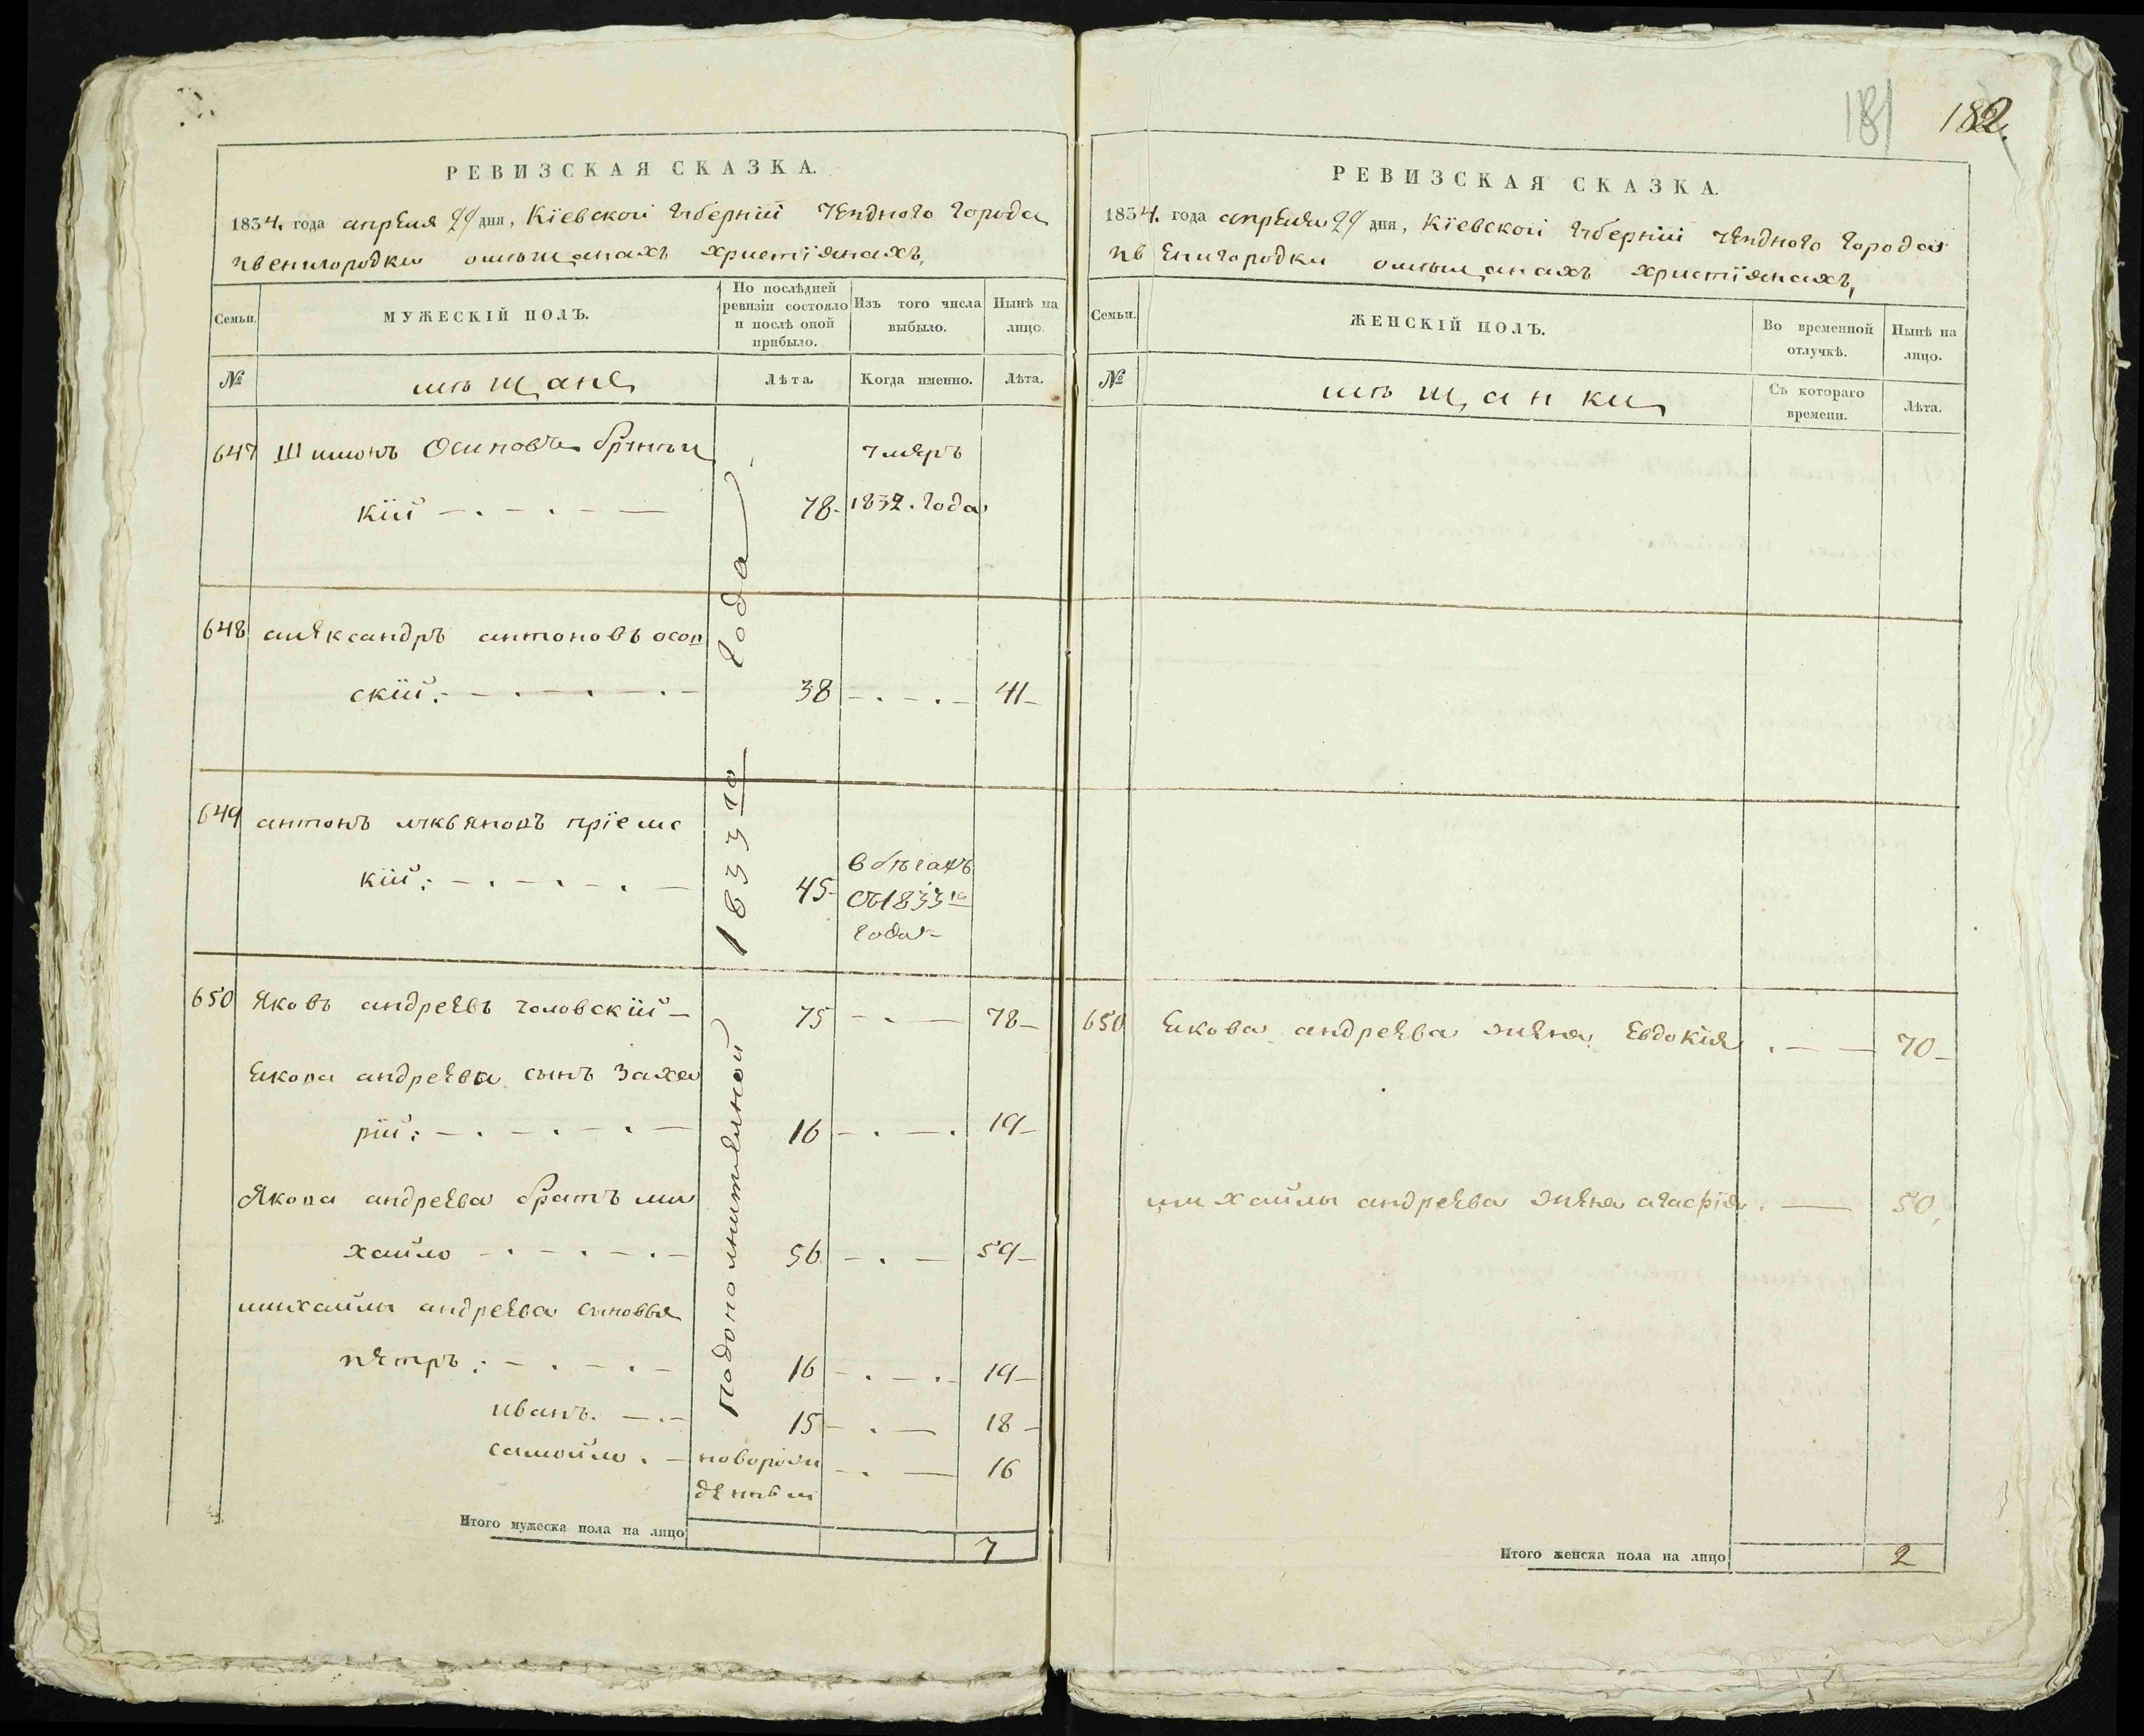 181 182.
РЕВИЗСКАЯ СКАЗКА.
1834. года апреля 29 дня, Кіевской губерніи уезднаго города
звенигородки омѣщанахъ христіянахъ,
Семьи.
МУЖЕСКІЙ ПОЛЪ.
По послѣдней ревизіи состояло и послѣ оной прибыло.
Изъ того числа выбыло.
Нынѣ на лицо.
№
мѣщане
Лѣта.
Когда именно.
Лѣта.
647 Шимонъ Осиповъ умеръ
кій 78 1832. года
648 александръ антоновъ
скій. 38 41
649 антонъ
кій: 45 в бѣгахъ
съ 1833го
года
650 Яковъ андреевъ чоловскій 75 78
Якова андреева сынъ Заха
рій: 16 19
Якова андреева братъ ми
хайло 56 59
михайлы андреева сыновья
петръ: 16 19
иванъ. 15 18
самойло. новорож
денный 16
подополнительной 1833го года
Итого мужеска пола на лицо 7
РЕВИЗСКАЯ СКАЗКА.
1834. года апреля 29 дня, Кіевской губерніи уезднаго города
звенигородки омѣщанахъ христіянахъ,
Семьи.
ЖЕНСКІЙ ПОЛЪ.
Во временной отлучкѣ.
Нынѣ на лицо.
№
мѣщанки
Съ котораго времени.
Лѣта.
650 Якова андреева жена Евдокія 70
михайлы андреева жена агафія. 50,
Итого женска пола на лицо 2